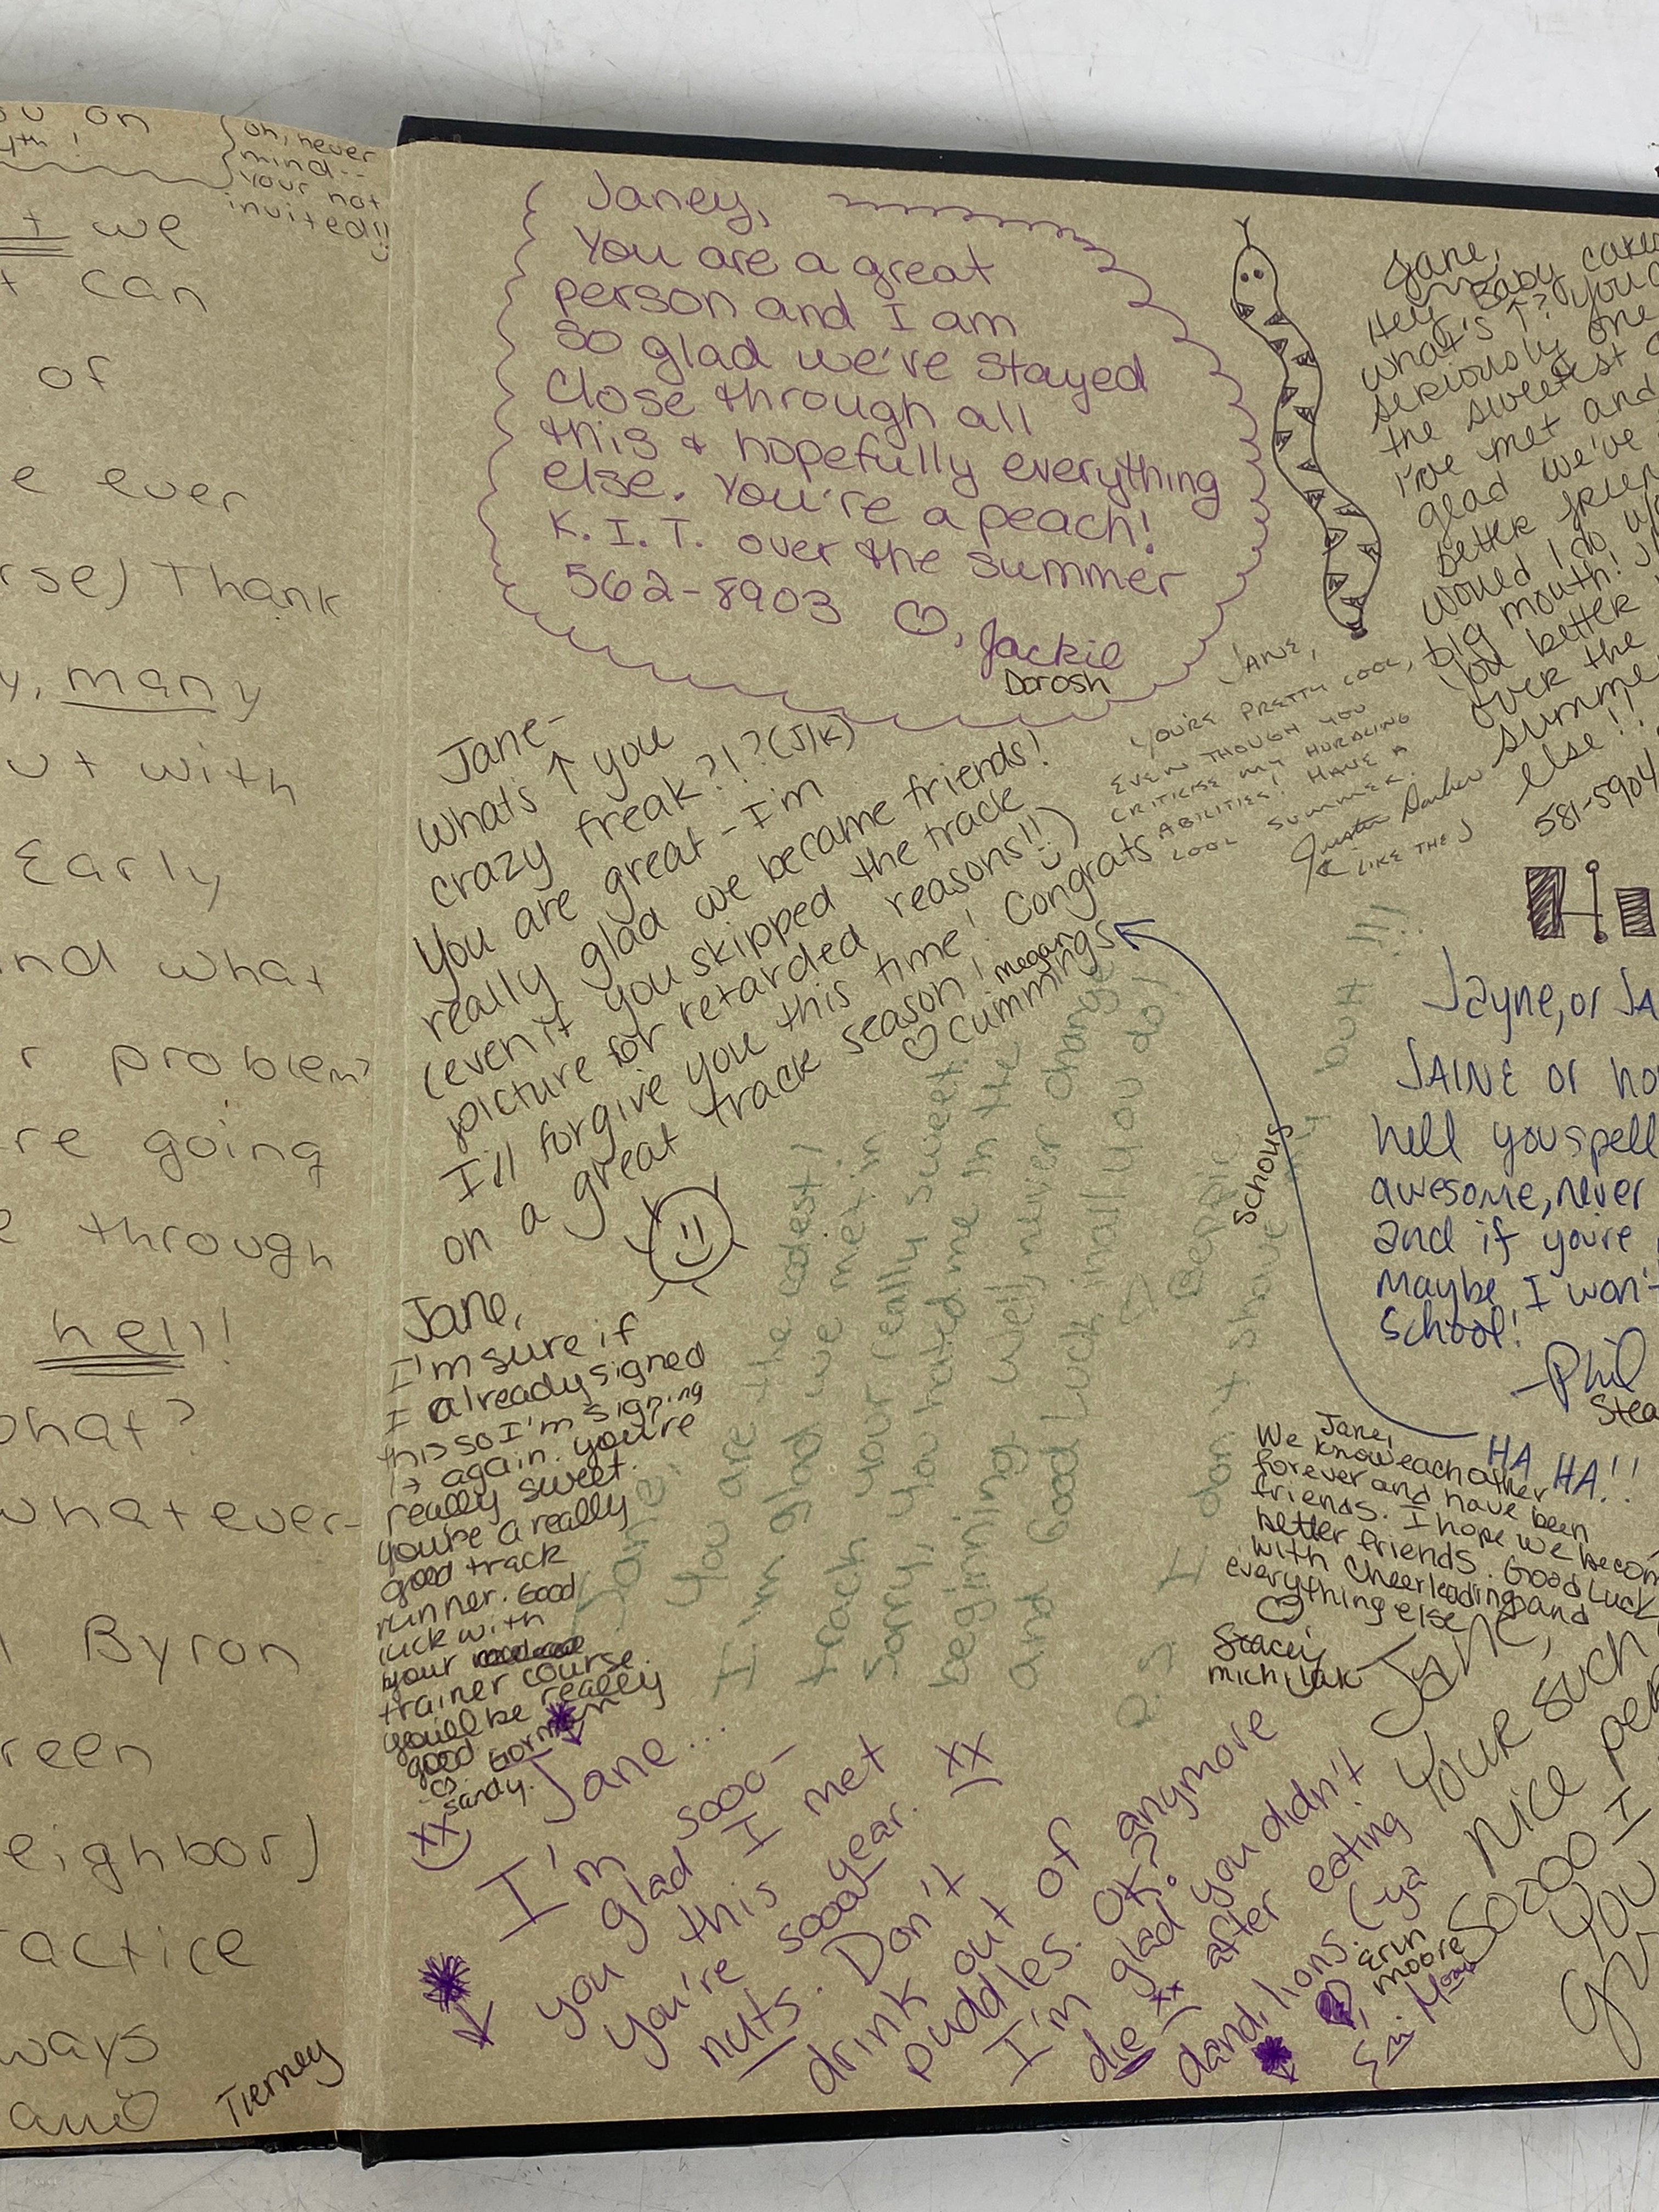 on
oh, never
mind--
your not
invited!!
we
can
of
ever
Thank
many
with
Early
what
problem?
going
through
hell!
what?
whatever-
Byron
Tierney
Janey,
You are a great
person and I am
so glad we've stayed
close through all
this & hopefully everything
else. You're a peach!
K.I.T. over the summer
562-8903 ♡, Jackie
Dorosh
Jane-
whats ↑ you
crazy freak?!?(J/K)
You are great - I'm
really glad we became friends!
(even if you skipped the track
picture for retarded reasons!!)
I'll forgive you this time! Congrats
on a great track season! megan
♡ cummings
JANE,
YOU'RE PRETTY COOL,
EVEN THOUGH YOU
CRITICISE MY HURDLING
ABILITIES! HAVE A
COOL SUMMER.
Justin
LIKE THE J
Jane,
Hey Baby cakes
what's ↑? you
seriously one
the sweetest
I've met and
glad we've
better frien
would I do w/o
big mouth!
you better
over the
summe
else!!
581-5904
Hi
Jayne, or JA
JAINE or ho
hell you spell
awesome, never
and if you're
maybe I won't
school!
-Phil
Stea
HA HA!!
Jane,
You are the coolest!
I'm glad we met in
track your really sweet.
Sorry, you hated me in the
beginning well, never change
and Good Luck in all you do!
Beppie
Schous
P.S. I don't shave my butt!!!
Jane,
I'm sure if
I already signed
this so I'm signing
it again. you're
really sweet.
you're a really
good track
runner. Good
luck with
your
trainer course.
you'll be really
good Gorman
♡ sandy.
Jane,
We know each other
forever and have been
friends. I hope we becom
better friends. Good Luck
with Cheerleading and
everything else
♡
Stacey
michjlak
Jane...
I'm sooo-
glad I met
you this year. xx
You're sooo
nuts. Don't
drink out of anymore
puddles. OK?
I'm glad you didn't
die xx after eating
dandilions. (-ya
Erin
moore
Jane,
Your such
nice per
Sooo I
you